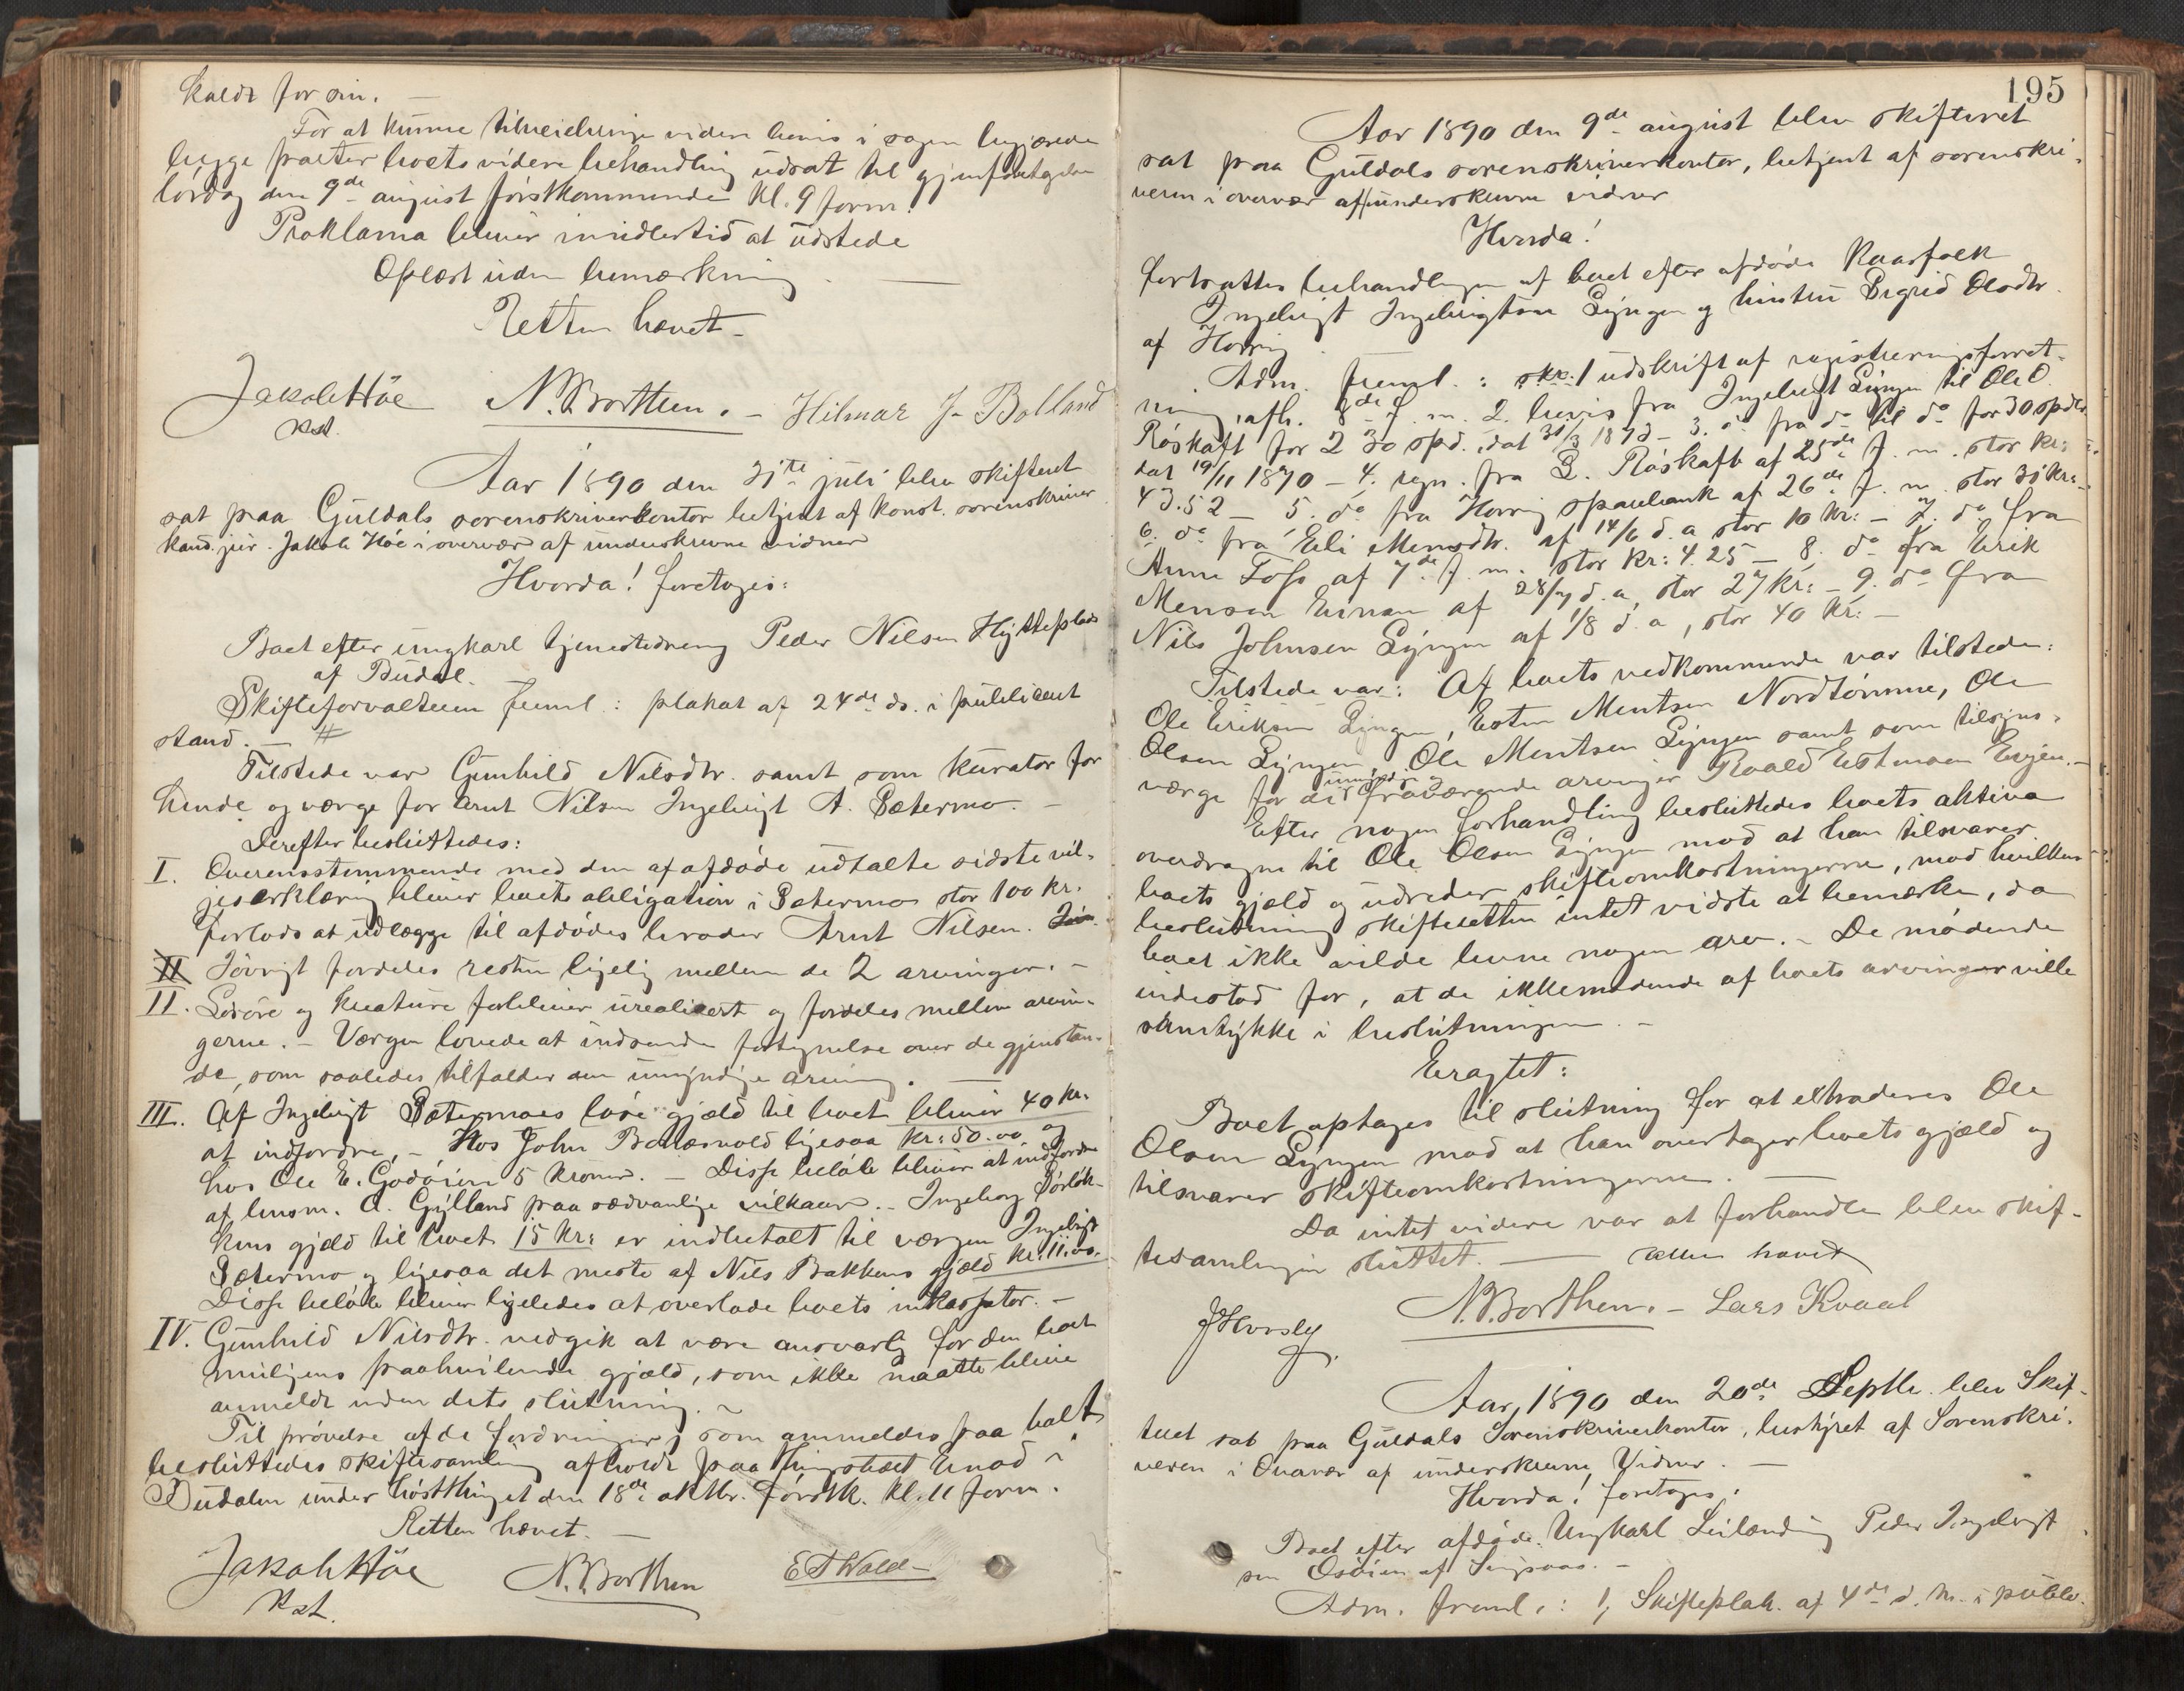 kaldt for sin. —
For at kunne tilveiebringe videre bevis i sagen begjærede
begge parter boets videre behandling udsat til gjenforetagelse
lørdag den 9de august førstkommende kl. 9 form.
Proklama bliver imidlertid at udstede
Oplæst uden bemærkning. —
Retten hævet —
Jakob Höe N. Borthen. — Hilmar J. Bolland
kst.
Aar 1890 den 31te juli blev skifteret
sat paa Guldals sorenskriverkontor betjent af konst. sorenskriver
kand. jur. Jakob Höe i overvær af underskrevne vidner
Hvorda! foretoges:
Boet efter ungkarl tjenestedreng Peder Nilsen Hytteplads
af Budal.
Skifteforvalteren freml.: plakat af 24de ds. i publiceret
stand. — #
Tilstede var Gunhild Nilsdtr. samt som kurator for
hende og værge for Arnt Nilsen Ingebrigt A. Sætermo. —
Derefter besluttedes:
I. Overensstemmende med den af afdøde udtalte sidste vil-
jeserklæring bliver boets obligation i Sætermo stor 100 kr.
forlods at udlægge til afdødes broder Arnt Nilsen.
II Iøvrigt fordeles resten ligelig mellem de 2 arvinger. —
II. Løsøre og kreature forbliver urealiseret og fordeles mellem arvin-
gerne. — Værgen lovede at indsende fortegnelse over de gjenstan-
de, som saaledes tilfalder den umyndige arving. —
III. Af Ingebrigt Sætermoes løse gjæld til boet bliver 40 kr.
at indfordre, — Hos John Ballesvold ligesaa kr: 50.00 og
hos Ole E. Godøien 5 kroner. — Disse beløb bliver at indfordre
af lensm. A. Gylland paa sædvanlige vilkaar. — Ingeborg Sørløk-
kens gjæld til boet 15 kr: er indbetalt til værgen Ingebrigt
Sætermo, og ligesaa det meste af Nils Bakkens gjæld kr: 11.00.
Disse beløb bliver ligeledes at overlade boets inkassator. —
IV. Gunhild Nilsdtr. vedgik at være ansvarlig for den boet
muligens paahvilende gjæld, som ikke maatte blive
anmeldt inden dets slutning. ~
Til prøvelse af de fordringer, som anmeldes paa boet
besluttedes skiftesamling afholdt paa thingstedet Enod i
Budalen under høstthinget den 18de oktbr. førstk. kl. 11 form.
Retten hævet. —
Jakob Höe N. Borthen E T Wold —
Kst.
195
Aar 1890 den 9de august blev skifteret
sat paa Guldals sorenskriverkontor, betjent af sorenskri-
veren i overvær af underskrevne vidner
Hvorda!
fortsattes behandlingen af boet efter afdøde kaarfolk
Ingebrigt Ingebrigtsen Lyngen og hustru Sigrid Olsdtr.
af Horrig. —
Adm. freml.: skr. 1 udskrift af registreringsforret-
ning, afh. 8de f. m. 2. bevis fra Ingebrigt Lyngen til Ole O.
Røskaft for 230 spd. dat 31/3 1873 — 3. do fra do til do for 30 spdlr.
dat 19/11 1870 — 4. regn. fra L. Røskaft af 25de f. m. stor kr:
43.52 — 5. do fra Horrig sparebank af 26de f. m. stor 30 kr: —
6. do fra Eli Mensdtr. af 14/6 d. a stor 10 kr: — 7. do fra
Anne Foss af 7de f. m. stor kr: 4.25 — 8. do fra Erik
Mensen af 28/7 d. a, stor 27 kr: — 9. do fra
Nils Johnsen Lyngen af 1/8 d. a, stor 40 kr: —
Tilstede var: Af boets vedkommende var tilstede:
Ole Eriksen Lyngen, Esten Mentsen Nordtømme, Ole
Olsen Lyngen, Ole Mentsen Lyngen samt som tilsyns-
værge for de umyndige og fraværende arvinger Roald Estensen Engen. —
Efter nogen forhandling besluttedes boets aktiva
overdragne til Ole Olsen Lyngen mod at han tilsvarer
boets gjæld og udreder skifteomkostningerne, mod hvilken
beslutning skifteretten intet vidste at bemærke, da
boet ikke vilde levne nogen arv. — De mødende
indestod for, at de ikkemødende af boets arvinger ville
samtykke i beslutningen. —
Eragtet:
Boet optages til slutning for at extraderes Ole
Olsen Lyngen mod at han overtager boets gjæld og
tilsvarer skifteomkostningerne. —
Da intet videre var at forhandle blev skif-
tesamlingen sluttet. — Retten hævet
J Horsley N. Borthen. — Lars Kvaal
Aar, 1890 den 20de Septbr. blev Skif-
teret sat paa Guldals Sorenskriverkontor, bestyret af Sorenskri-
veren i Overvær af underskrevne Vidner. —
Hvorda! foretoges:
Boet efter afdøde Ungkarl Leilænding Peder Ingebrigt
sen Osøien af Singsaas. —
Adm. freml.: 1, Skifteplak. af 4de d. M. i public.